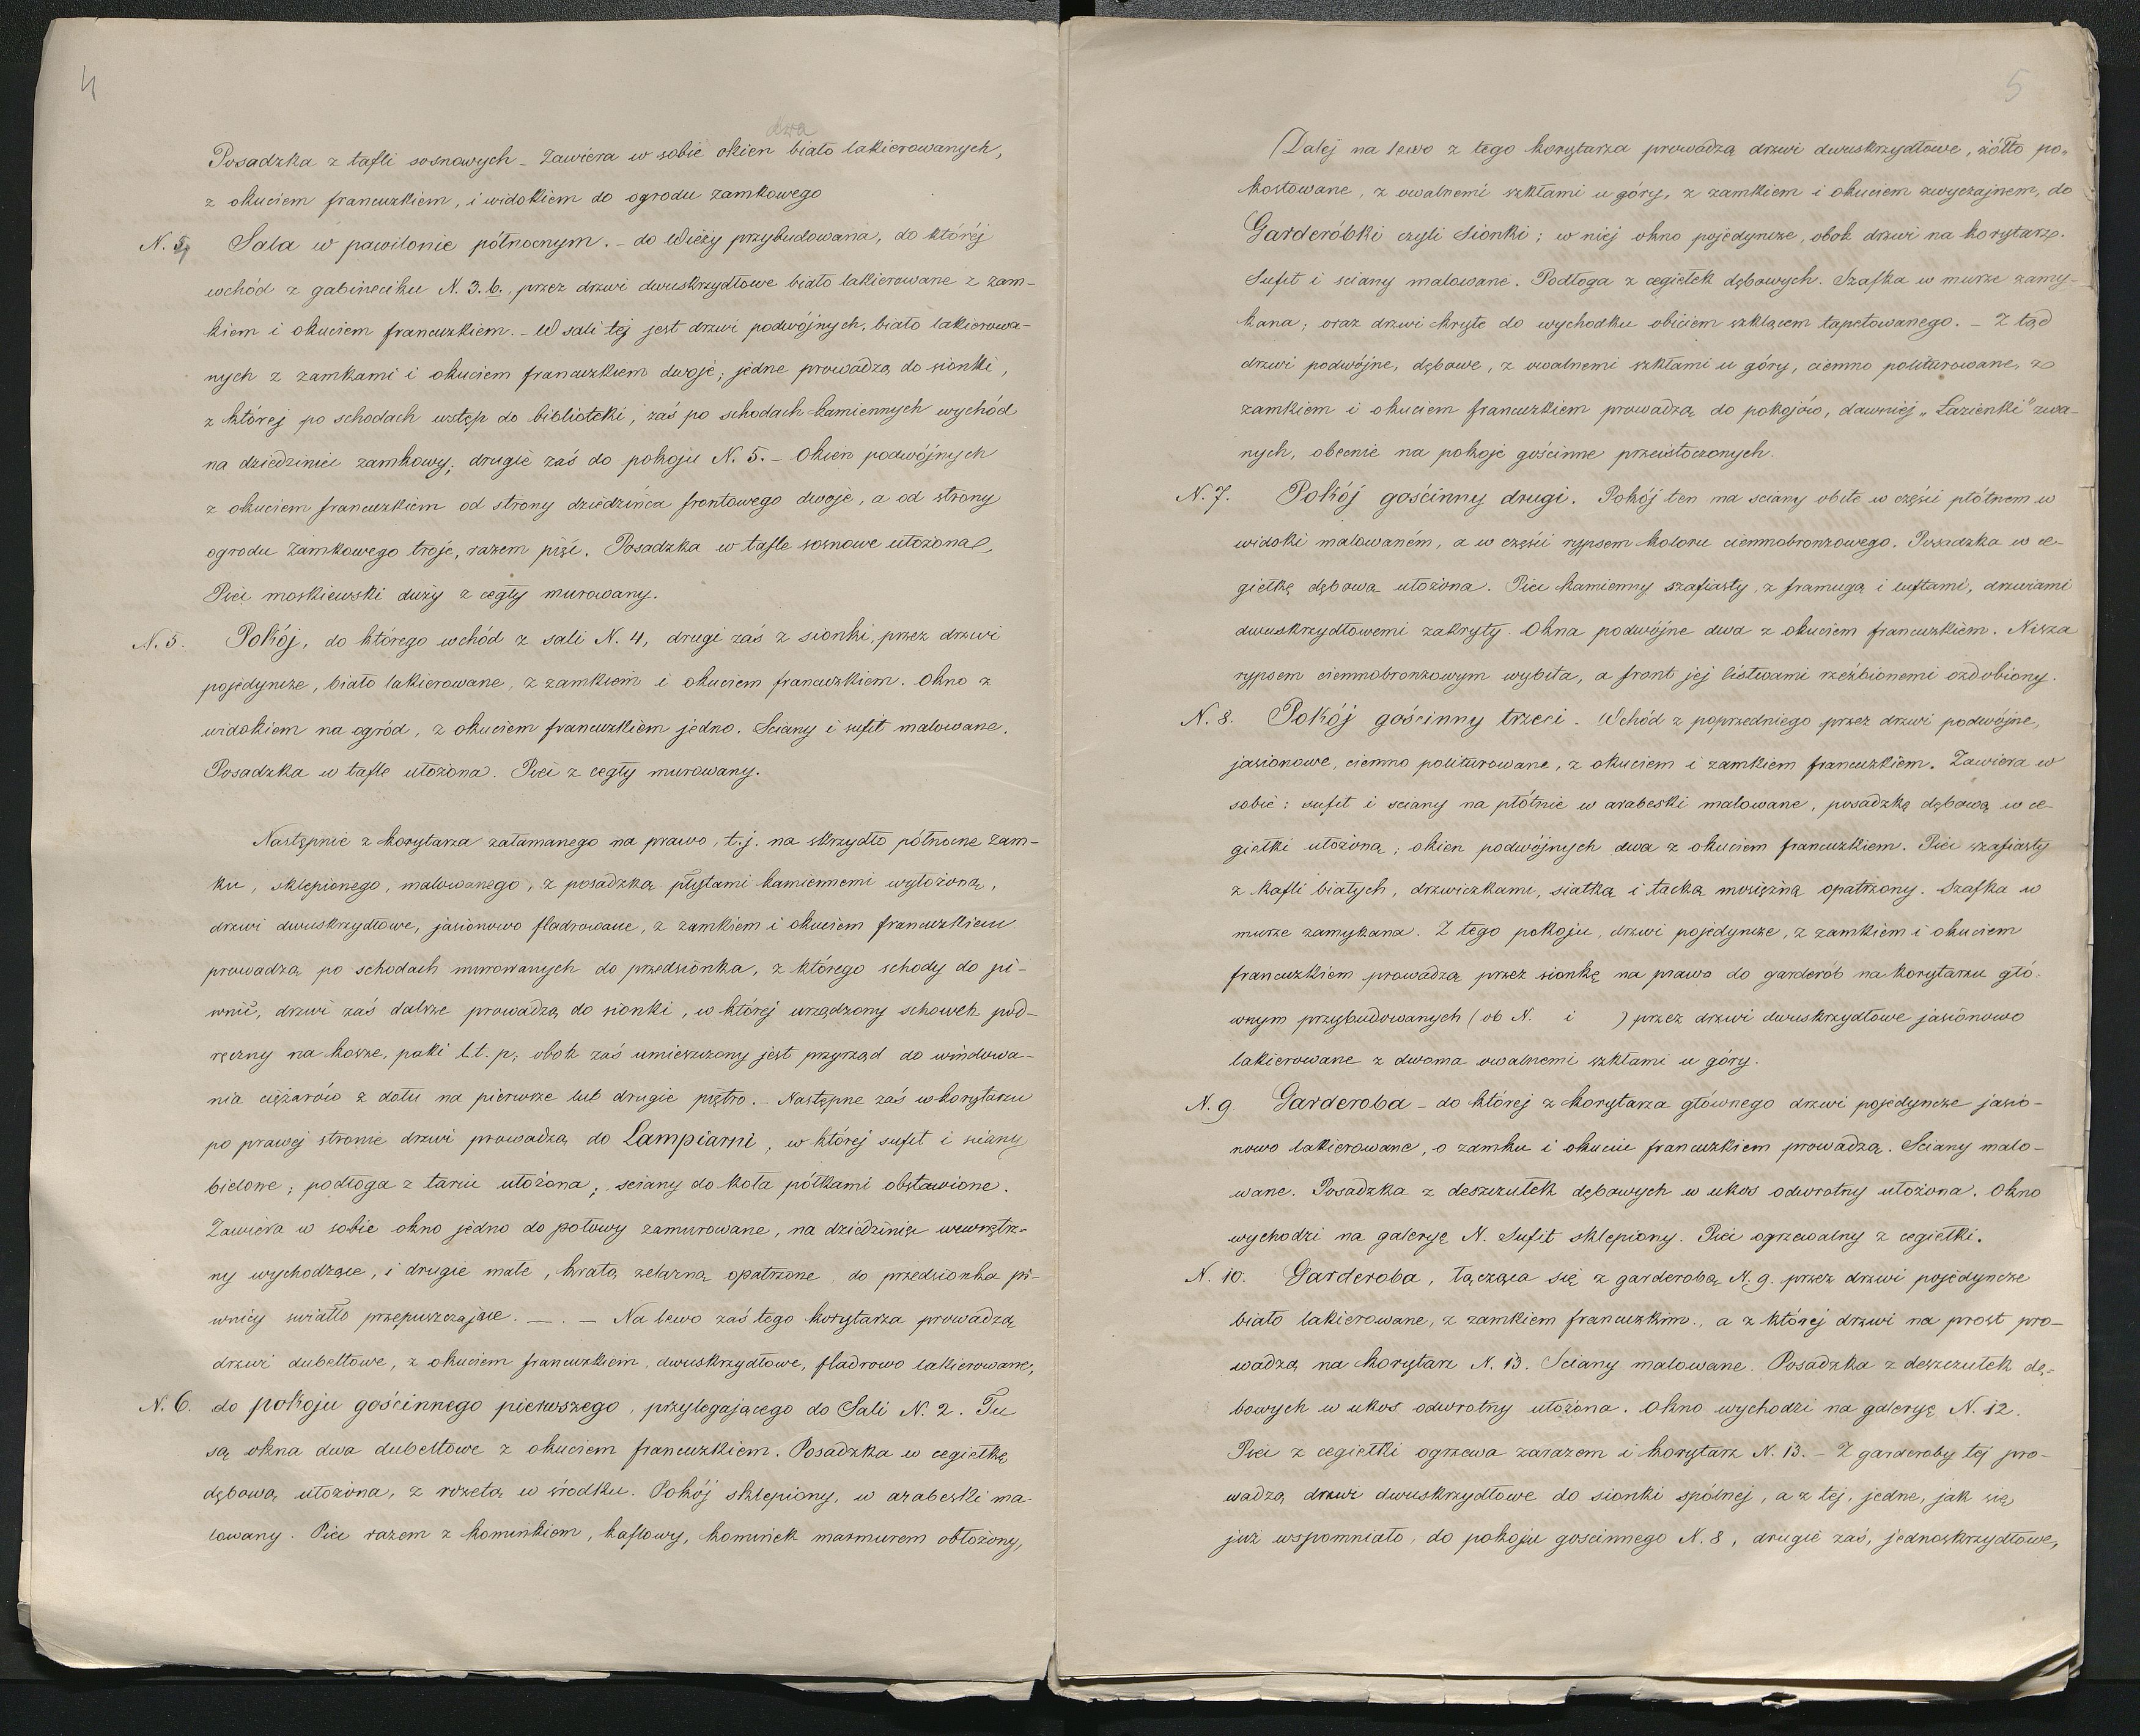 4
dwa
Posadzka z tafli sosnowych – Zawiéra w sobie okien biało lakierowanych,
z okuciem francuzkiem, i widokiem do ogrodu zamkowego
N. 5 Sala w pawilonie północnym. – do Wieży przybudowana, do któréj
wchód z gabineciku N. 3.b. przez drzwi dwuskrzydłowe biało lakierowane z zam-
kiem i okuciem francuzkiem. – W sali téj jest drzwi podwójnych, biało lakierowa-
nych z zamkami i okuciem francuzkiem dwoje; jedne prowadzą do sionki,
z któréj po schodach wstęp do biblioteki, zaś po schodach kamiennych wychód
na dziedziniec zamkowy; drugie zaś do pokoju N. 5. – Okien podwójnych
z okuciem francuzkiem od strony dziedzińca frontowego dwoje, a od strony
ogrodu Zamkowego troje, razem pięć. Posadzka w tafle sosnowe ułożona,
Piec moskiewski duży z cegły murowany.
N. 5. Pokój, do którego wchód z sali N. 4, drugi zaś z sionki, przez drzwi
pojedyncze, biało lakierowane, z zamkiem i okuciem francuzkiem. Okno z
widokiem na ogród, z okuciem francuzkiem jedno. Sciany i sufit malowane.
Posadzka w tafle ułożona. Piec z cegły murowany.
Następnie z korytarza załamanego na prawo, t.j. na skrzydło północne zam-
ku, sklepionego, malowanego, z posadzką płytami kamiennemi wyłożoną,
drzwi dwuskrzydłowe, jasionowo fladrowane, z zamkiem i okuciem francuzkiem
prowadzą po schodach murowanych do przedsionka, z którego schody do pi-
wnic, drzwi zaś dalsze prowadzą do sionki, w któréj urządzony schowek pod-
ręczny na kosze, paki i.t.p, obok zaś umieszczony jest przyrząd do windowa-
nia ciężarów z dołu na pierwsze lub drugie piętro. – Następne zaś w korytarzu
po prawej stronie drzwi prowadzą do Lampiarni, w której sufit i sciany
bielone; podłoga z tarcic ułożona; sciany do koła półkami obstawione.
Zawiéra w sobie okno jedno do połowy zamurowane, na dziedziniec wewnętrz-
ny wychodzące, i drugie małe, kratą żelazną opatrzone, do przedsionka pi-
wnicy swiatło przepuszczające. – . – Na lewo zaś tego korytarza prowadzą
drzwi dubeltowe, z okuciem francuzkiem, dwuskrzydłowe, fladrowo lakierowane,
N. 6. do pokoju gościnnego pierwszego, przylegającego do Sali N. 2. Tu
są okna dwa dubeltowe z okuciem francuzkiem. Posadzka w cegiełkę
dębową ułożona, z rozetą w środku. Pokój sklepiony, w arabeski ma-
lowany. Piec razem z kominkiem, kaflowy, kominek marmurem obłożony,
5
Dalej na lewo z tego korytarza prowadzą drzwi dwuskrzydłowe, żółto po-
kostowane, z owalnemi szkłami u góry, z zamkiem i okuciem zwyczajnem, do
Garderóbki czyli Sionki; w niej okno pojedyncze, obok drzwi na korytarz.
Sufit i sciany malowane. Podłoga z cegiełek dębowych. Szafka w murze zamy-
kana; oraz drzwi kryte do wychodku obiciem szklącem tapetowanego. – Z tąd
drzwi podwójne, dębowe, z owalnemi szkłami u góry, ciemno politurowane, z
zamkiem i okuciem francuzkiem prowadzą do pokojów, dawniej „Łazienki" zwa-
nych, obecnie na pokoje gościnne przeistoczonych.
N. 7. Pokój gościnny drugi. Pokój ten ma sciany obite w części płótnem w
widoki malowaném, a w części rypsem koloru ciemnobronzowego. Posadzka w ce-
giełkę dębową ułożona. Piec kamienny szafiasty, z framugą i luftami, drzwiami
dwuskrzydłowemi zakryty. Okna podwójne dwa z okuciem francuzkiem. Nisza
rypsem ciemnobronzowym wybita, a front jej listwami rzeźbionemi ozdobiony.
N. 8. Pokój gościnny trzeci – Wchód z poprzedniego przez drzwi podwójne,
jasionowe, ciemno politurowane, z okuciem i zamkiem francuzkiem. Zawiera w
sobie: sufit i sciany na płótnie w arabeski malowane, posadzką dębową w ce-
giełki ułożoną; okien podwójnych dwa z okuciem francuzkiem. Piec szafiasty
z kafli białych, drzwiczkami, siatką i tacką mosiężną opatrzony. Szafka w
murze zamykana. Z tego pokoju, drzwi pojedyncze, z zamkiem i okuciem
francuzkiem prowadzą przez sionkę na prawo do garderób na korytarzu głó-
wnym przybudowanych (ob N. i ) przez drzwi dwuskrzydłowe jasionowo
lakierowane z dwoma owalnemi szkłami u góry.
N. 9. Garderoba – do której z korytarza głównego drzwi pojedyncze jasio-
nowo lakierowane, o zamku i okuciu francuzkiem prowadzą. Sciany malo-
wane. Posadzka z deszczułek dębowych w ukos odwrotny ułożona. Okno
wychodzi na galeryę N. Sufit sklepiony. Piec ogrzewalny z cegiełki.
N. 10. Garderoba, łącząca się z garderobą N. 9. przez drzwi pojedyncze
biało lakierowane, z zamkiem francuzkim., a z której drzwi na prost pro-
wadzą na korytarz N. 13. Sciany malowane. Posadzka z deszczułek dę-
bowych w ukos odwrotny ułożona. Okno wychodzi na galeryę N. 12.
Piec z cegiełki ogrzewa zarazem i korytarz N. 13. – Z garderoby tej pro-
wadzą drzwi dwuskrzydłowe do sionki spólnej, a z tej, jedne, jak się
już wspomniało, do pokoju goscinnego N. 8, drugie zaś, jednoskrzydłowe,